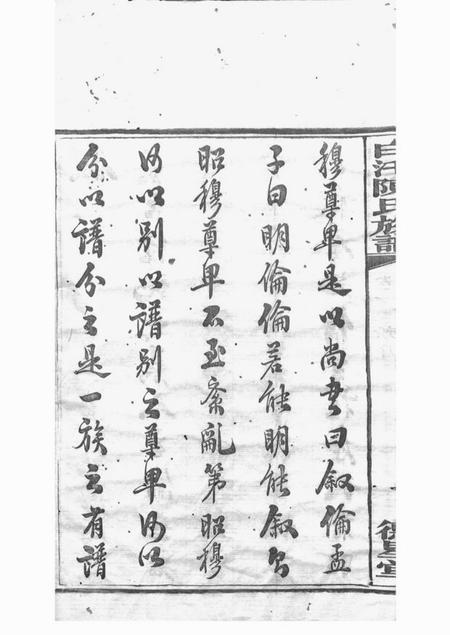 穆尊卑是以尚書曰叙倫孟
子曰明倫倫若能明能叙則
昭穆尊卑不至紊亂第昭穆
何以别以譜别之尊卑何以
分以譜分之是一族之有譜